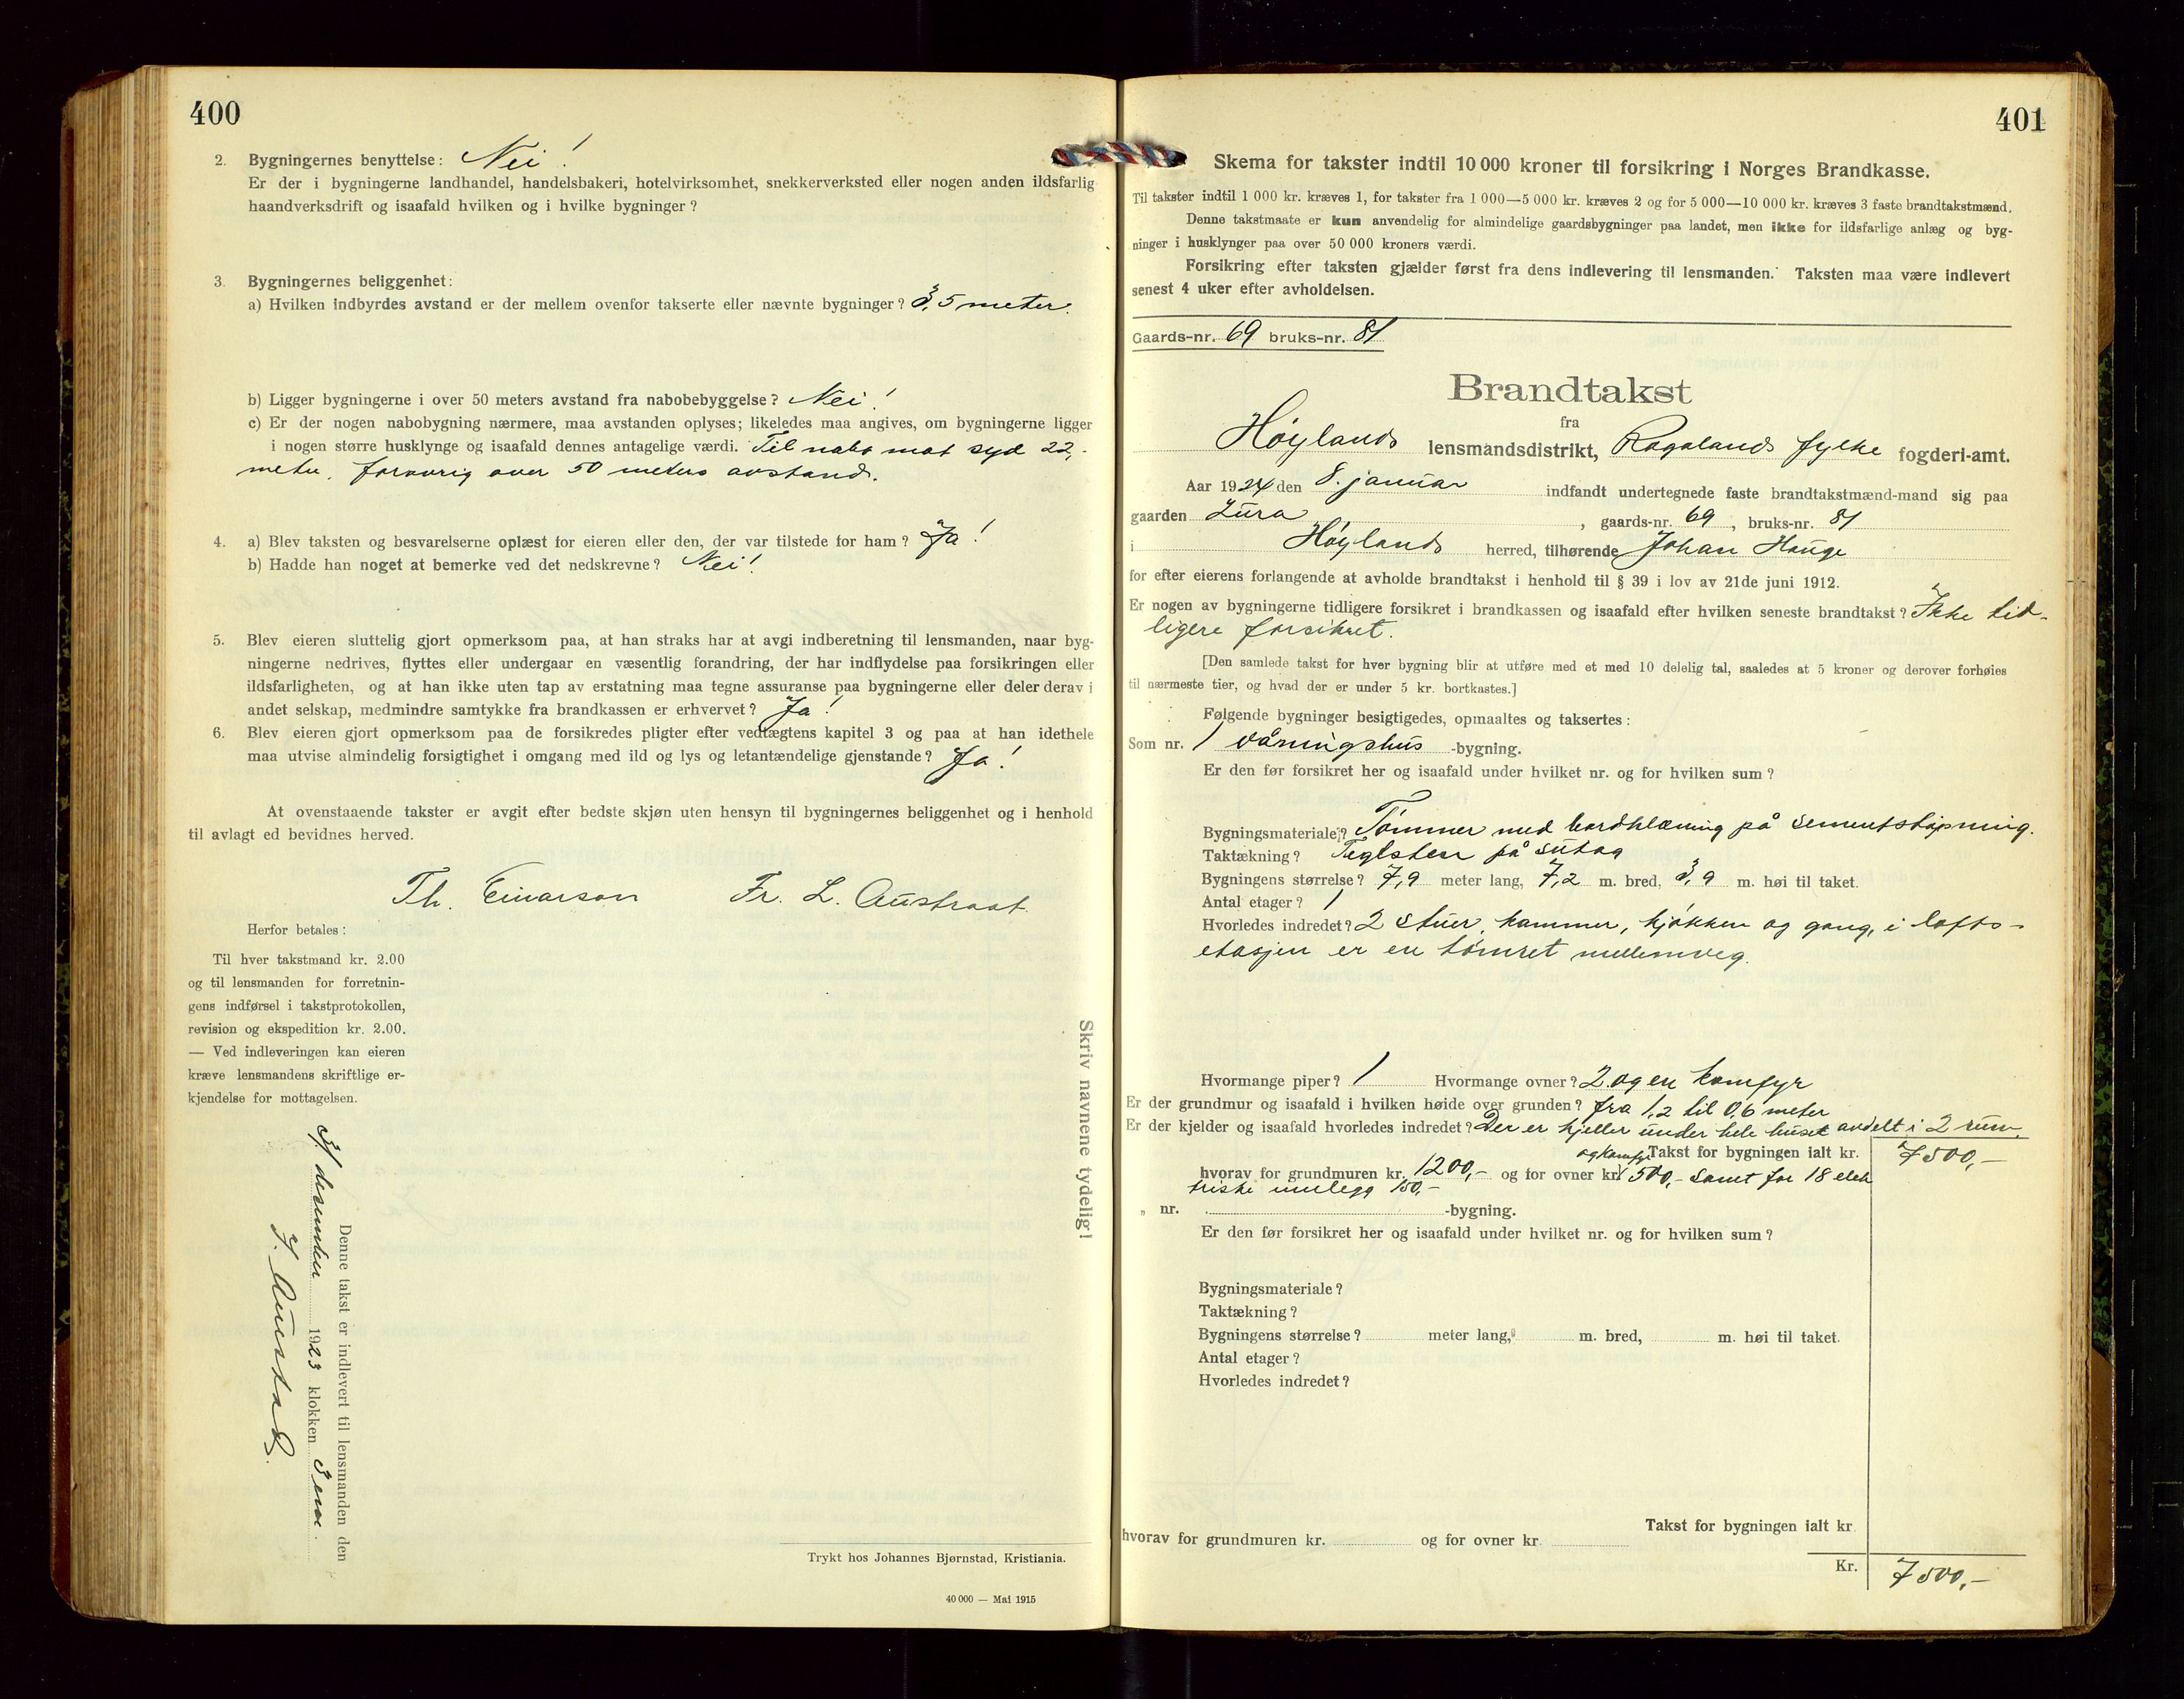 400
2. Bygningernes benyttelse: Nei!
Er der i bygningerne landhandel, handelsbakeri, hotelvirksomhet, snekkerverksted eller nogen anden ildsfarlig
haandverksdrift og isaafald hvilken og i hvilke bygninger?
3. Bygningernes beliggenhet:
a) Hvilken indbyrdes avstand er der mellem ovenfor takserte eller nævnte bygninger? 3,5 meter.
b) Ligger bygningerne i over 50 meters avstand fra nabobebyggelse? Nei!
c) Er der nogen nabobygning nærmere, maa avstanden oplyses; likeledes maa angives, om bygningerne ligger
i nogen større husklynge og isaafald dennes antagelige værdi. Til nabo mot syd 22,
meter. forøvrig over 50 meters avstand.
4. a) Blev taksten og besvarelserne oplæst for eieren eller den, der var tilstede for ham? Ja!
b) Hadde han noget at bemerke ved det nedskrevne? Nei!
5. Blev eieren sluttelig gjort opmerksom paa, at han straks har at avgi indberetning til lensmanden, naar byg-
ningerne nedrives, flyttes eller undergaar en væsentlig forandring, der har indflydelse paa forsikringen eller
ildsfarligheten, og at han ikke uten tap av erstatning maa tegne assuranse paa bygningerne eller deler derav i
andet selskap, medmindre samtykke fra brandkassen er erhvervet? Ja!
6. Blev eieren gjort opmerksom paa de forsikredes pligter efter vedtægtens kapitel 3 og paa at han idethele
maa utvise almindelig forsigtighet i omgang med ild og lys og letantændelige gjenstande? Ja!
At ovenstaaende takster er avgit efter bedste skjøn uten hensyn til bygningernes beliggenhet og i henhold
til avlagt ed bevidnes herved.
Th. Einarson Fr. L. Austraat
Herfor betales:
Til hver takstmand kr. 2.00
og til lensmanden for forretnin-
gens indførsel i takstprotokollen,
revision og ekspedition kr. 2.00.
— Ved indleveringen kan eieren
kræve lensmandens skriftlige er-
kjendelse for mottagelsen.
Denne takst er indlevert til lensmanden den
31 desember 1923 klokken 3 em.
Skriv navnene tydelig!
Trykt hos Johannes Bjørnstad, Kristiania.
40 000 — Mai 1915
401
Skema for takster indtil 10 000 kroner til forsikring i Norges Brandkasse.
Til takster indtil 1 000 kr. kræves 1, for takster fra 1 000—5 000 kr. kræves 2 og for 5 000—10 000 kr. kræves 3 faste brandtakstmænd.
Denne takstmaate er kun anvendelig for almindelige gaardsbygninger paa landet, men ikke for ildsfarlige anlæg og byg-
ninger i husklynger paa over 50 000 kroners værdi.
Forsikring efter taksten gjælder først fra dens indlevering til lensmanden. Taksten maa være indlevert
senest 4 uker efter avholdelsen.
Gaards-nr. 69 bruks-nr. 81
Brandtakst
fra
Høylands lensmandsdistrikt, Rogalands fylke fogderi-amt.
Aar 1924 den 8. januar indfandt undertegnede faste brandtakstmænd-mand sig paa
gaarden Lura, gaards-nr. 69, bruks-nr. 81
i Høylands herred, tilhørende Johan Hauge
for efter eierens forlangende at avholde brandtakst i henhold til § 39 i lov av 21de juni 1912.
Er nogen av bygningerne tidligere forsikret i brandkassen og isaafald efter hvilken seneste brandtakst? Ikke tid-
ligere forsikret.
[Den samlede takst for hver bygning blir at utføre med et med 10 delelig tal, saaledes at 5 kroner og derover forhøies
til nærmeste tier, og hvad der er under 5 kr. bortkastes.]
Følgende bygninger besigtigedes, opmaaltes og taksertes:
Som nr. 1 våningshus -bygning.
Er den før forsikret her og isaafald under hvilket nr. og for hvilken sum?
Bygningsmateriale? Tømmer med bordklæning på sementstøpning.
Taktækning? Teglsten på sutag
Bygningens størrelse? 7,9 meter lang, 7,2 m. bred, 3,9 m. høi til taket.
Antal etager? 1
Hvorledes indredet? 2 stuer, kammer, kjøkken og gang, i lofts-
etasjen er en tømret mellemveg.
Hvormange piper? 1 Hvormange ovner? 2 og en komfyr
Er der grundmur og isaafald i hvilken høide over grunden? fra 1,2 til 0,6 meter
Er der kjelder og isaafald hvorledes indredet? Der er kjeller under hele huset avdelt i 2 rum
Takst for bygningen ialt kr. 7500,-
og komfyr
hvorav for grundmuren kr. 1200,- og for ovner kr. 500,- samt for 18 elek
triske innlegg 150,-
„ nr. -bygning.
Er den før forsikret her og isaafald under hvilket nr. og for hvilken sum?
Bygningsmateriale?
Taktækning?
Bygningens størrelse? meter lang, m. bred, m. høi til taket.
Antal etager?
Hvorledes indredet?
Takst for bygningen ialt kr.
hvorav for grundmuren kr. og for ovner kr.
Kr. 7500,-